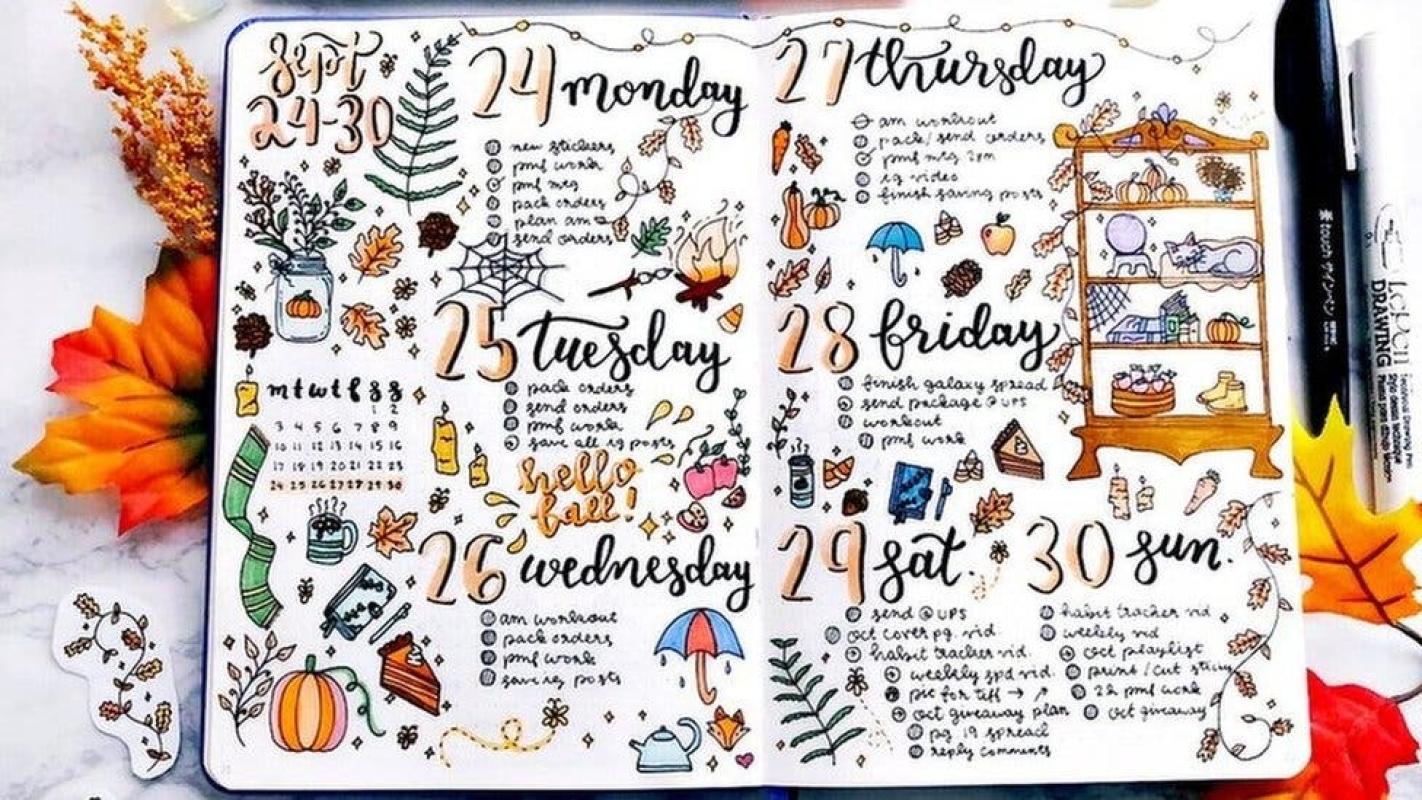 sept
24-30
m t w t f s s
1 2
3 4 5 6 7 8 9
10 11 12 13 14 15 16
17 18 19 20 21 22 23
24 25 26 27 28 29 30
24 monday
new stickers
pmf work
pmf mtg
pack orders
plan am
send orders
25 tuesday
pack orders
send orders
pmf work
save all ig posts
hello
fall!
26 wednesday
am workout
pack orders
pmf work
save ig posts
27 thursday
am workout
pack/send orders
pmf mtg 2pm
ig video
finish saving posts
28 friday
finish galaxy spread
send package @ UPS
workout
pmf work
29 sat.
send @ UPS
oct cover pg. vid.
habit tracker vid.
weekly spd vid.
pic for tiff →
oct giveaway plan
pg 19 spread
reply comments
30 sun.
habit tracker vid
weekly vid
oct playlist
print/cut
2h pmf work
oct giveaway
touch サインペン
LePen
DRAWING